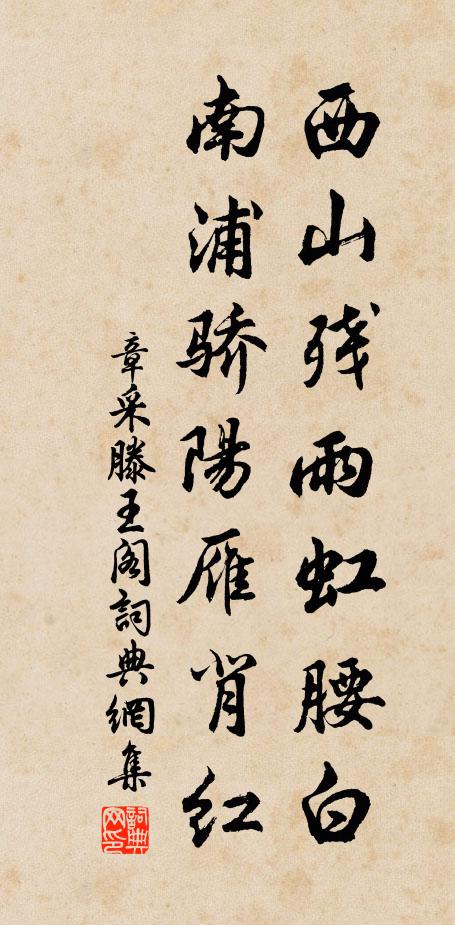 西山残雨虹腰白
南浦骄陽雁背红
章采滕王阁詞典網集
詞典网印